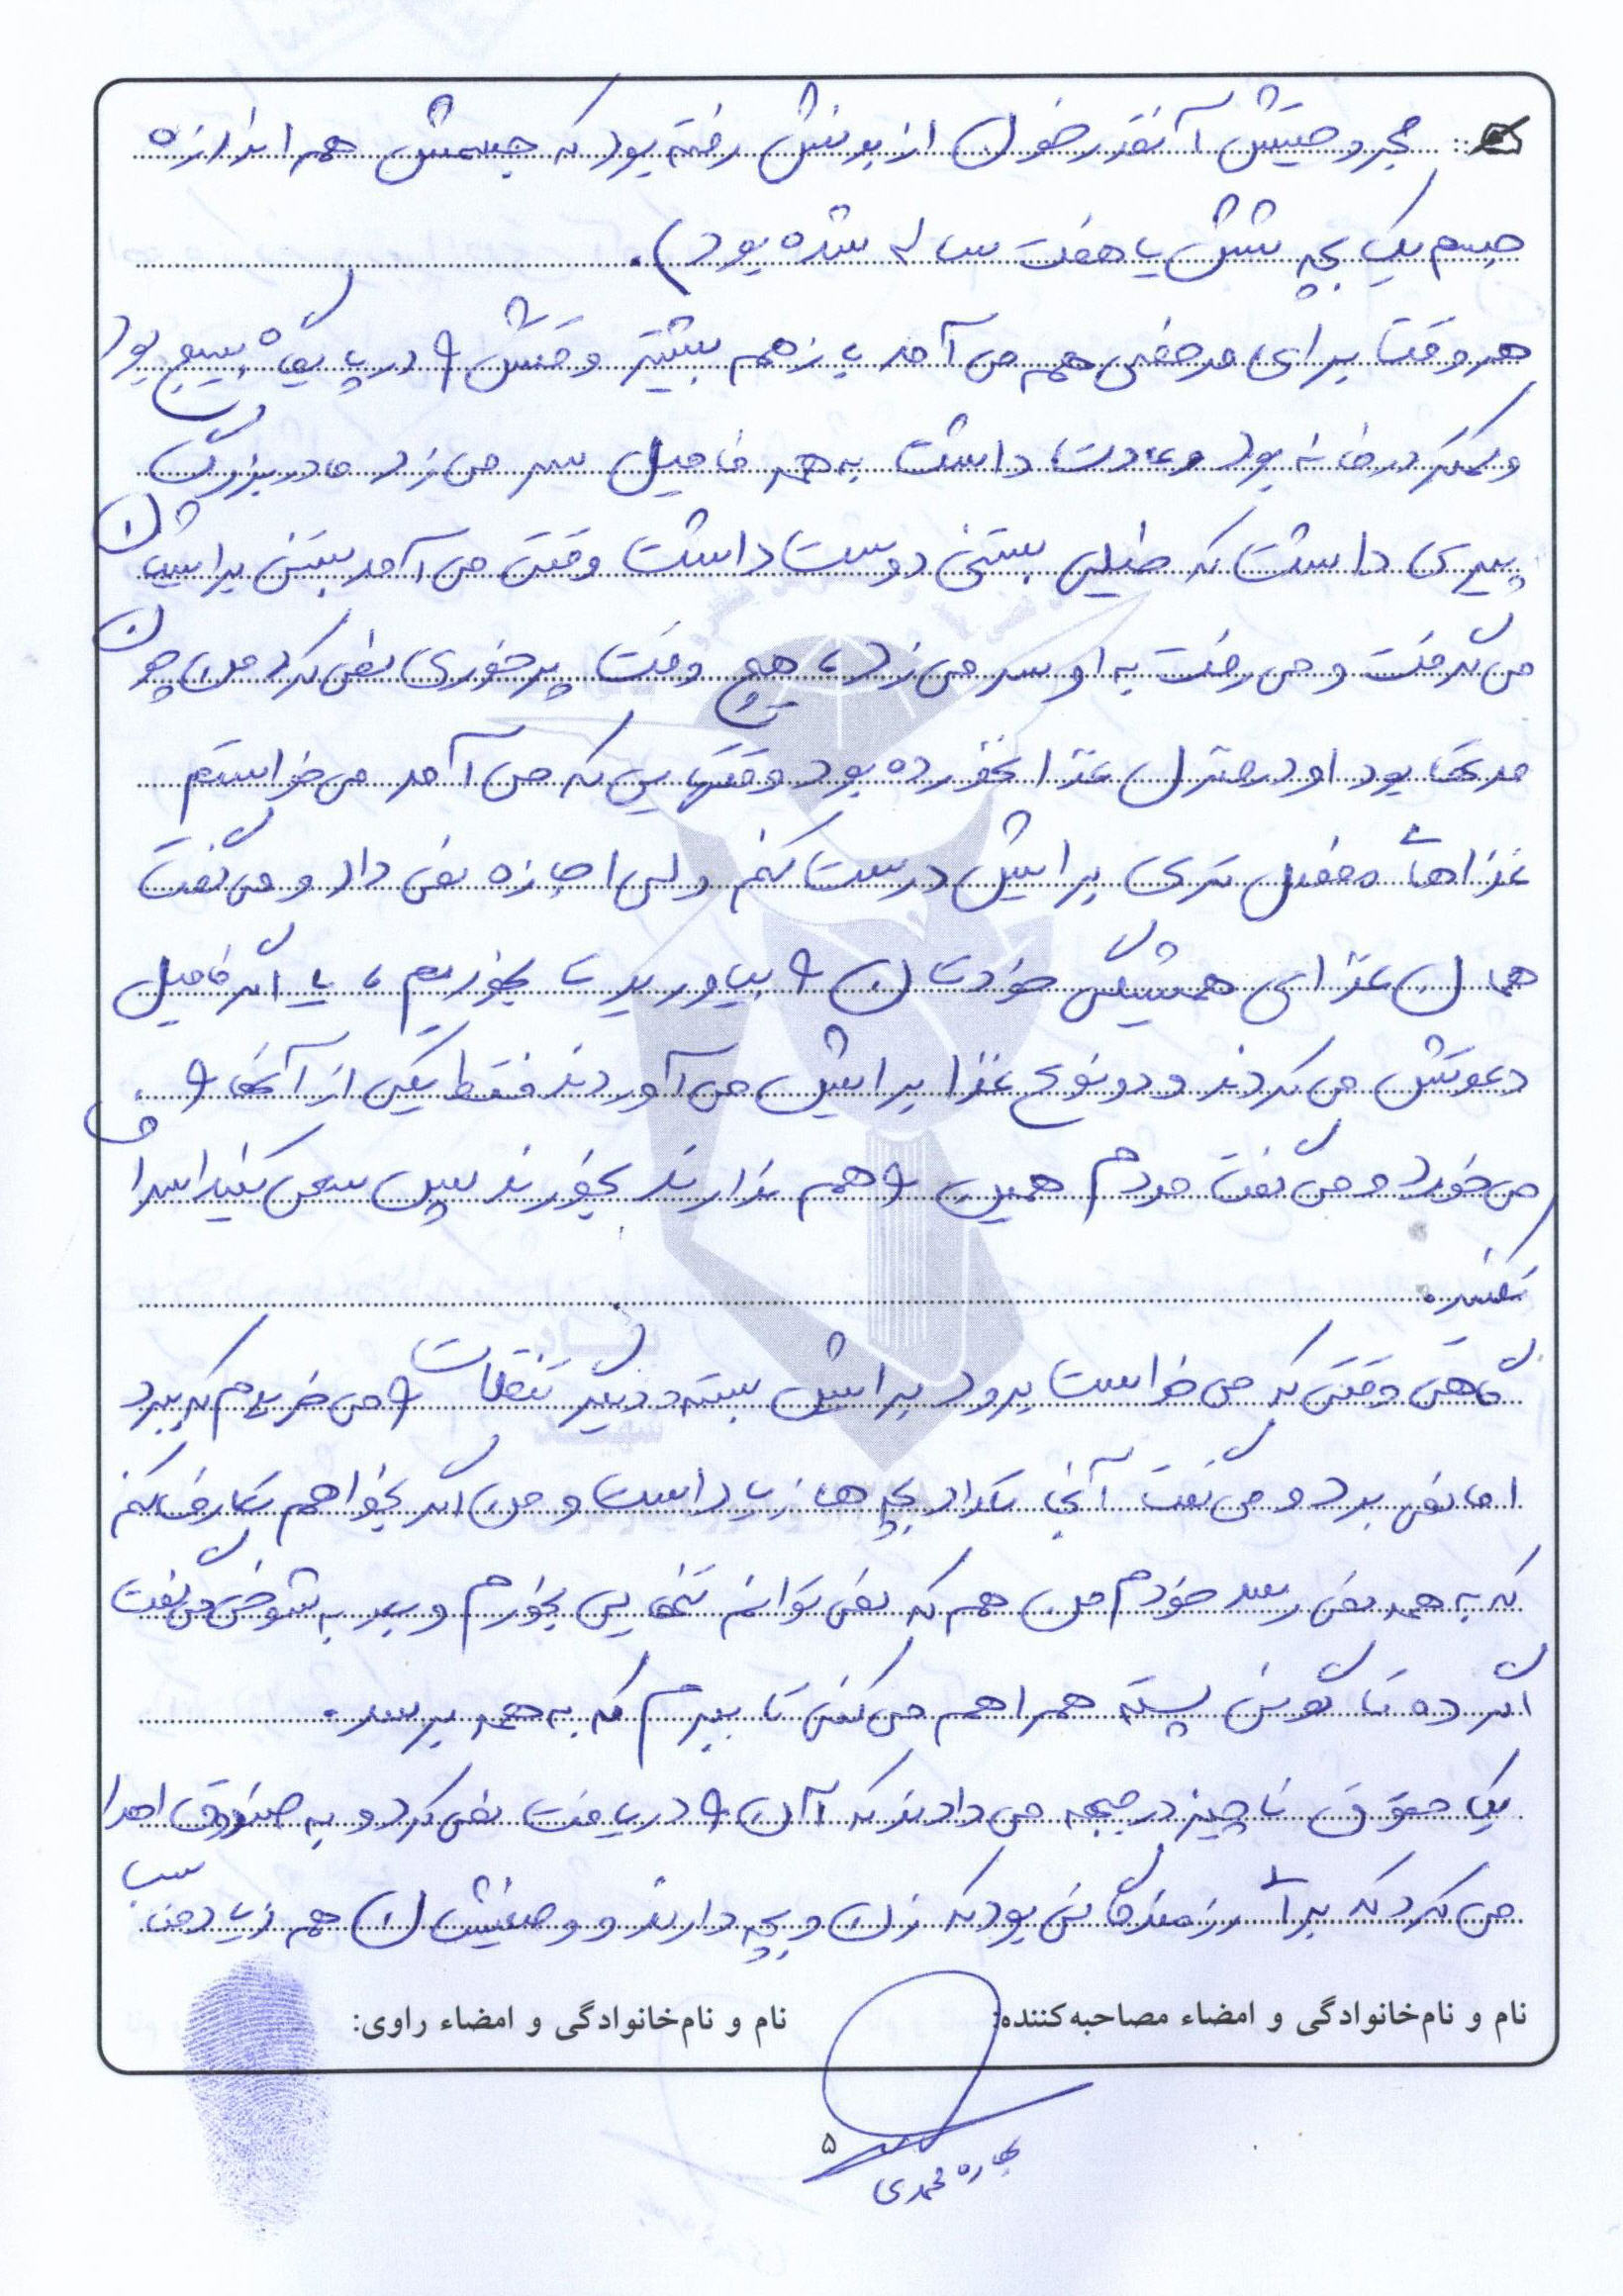 مجروحیتش آنقدر خون از بدنش رفته بود که جسمش هم اندازه
جسم یک بچه شش یا هفت ساله شده بود).
هر وقت برای مرخصی هم می آمد باز هم بیشتر وقتش در پایگاه بسیج بود
و کمتر در خانه بود و عادت داشت به همه فامیل سر می زد مادربزرگ
پیری داشت که خیلی بستنی دوست داشت وقتی می آمد بستنی برایشان
می گرفت و می رفت به او سر می زد، هیچ وقت پرخوری نمی کرد من چون
مدتها بود او در منزل غذا نخورده بود وقتهایی که می آمد می خواستم
غذاهای مفصل تری برایش درست کنم ولی اجازه نمی داد و می گفت
همان غذای همیشگی خودتان را بیاورید تا بخوریم، یا اگر فامیل
دعوتش می کردند و دو نوع غذا برایش می آوردند فقط یکی از آنها را
می خورد و می گفت مردم همین را هم ندارند بخورند پس سعی کنید اسراف
نکنید.
گاهی وقتی که می خواست برود برایش پسته و دیگر تنقلات را می خریدم که ببرد
اما نمی برد و می گفت آنجا تعداد بچه ها زیاد است و من اگر بخواهم تعارف کنم
که به همه نمی رسد خودم من هم که نمی توانم تنهایی بخورم و بعد به شوخی می گفت
اگر ده تا گونی پسته همراهم می کنی تا ببرم که به همه برسد.
یک حقوق ناچیز در جبهه می دادند که آن را دریافت نمی کرد و به صندوق اهدا
می کرد که برای رزمندگانی بود که زن و بچه دارند و وضعیتشان هم زیاد مناسب
نام و نام‌خانوادگی و امضاء مصاحبه‌کننده:
نام و نام‌خانوادگی و امضاء راوی:
۵
بهاره محمدی